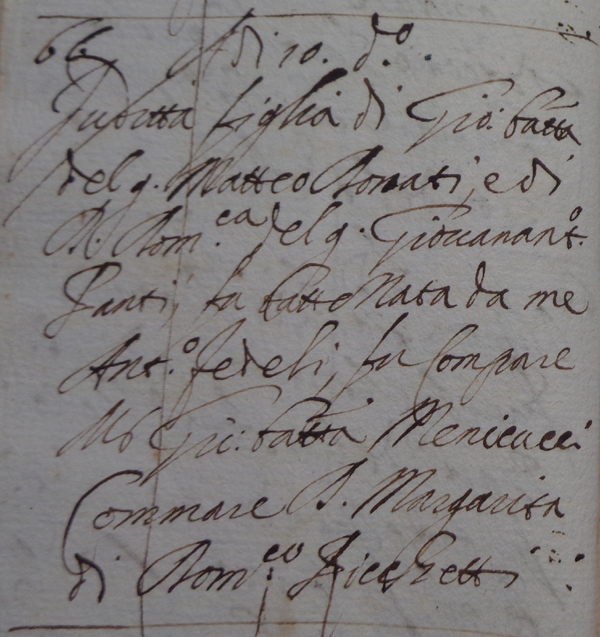 66. Adi 10. d.o
Juditta figlia di Gio: batta
del q. Matteo Donati, e di
D. Dom.ca del q. Giouanant.o
Santi, fu battezzata da me
Ant.o Fedeli, fu Compare
Mo Gio: batta Menicucci
Commare D. Margarita
di Dom.co Ricchetti